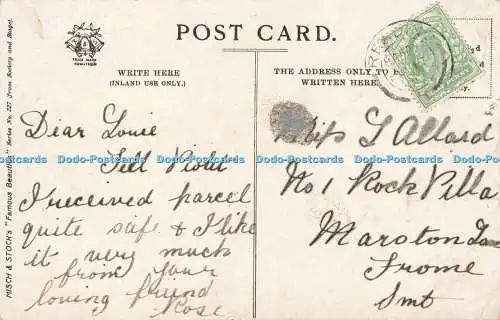 POST CARD.
TRADE MARK
WRITE HERE
(INLAND USE ONLY.)
THE ADDRESS ONLY TO
WRITTEN HERE.
MISCH & STOCK'S "Famous Beauties" Series No. 227 (From Bodery and Stage).
Dear Louie
Tell Violet
I received parcel
quite safe & I like
it very much
from your
loving friend
Rose
Miss L Allard
No 1 Rock Villa
Marston Lane
Frome
Smt
Dodo-Postcards Dodo-Postcards Dodo-Postcards Dodo-Postcards Dodo-Postcards